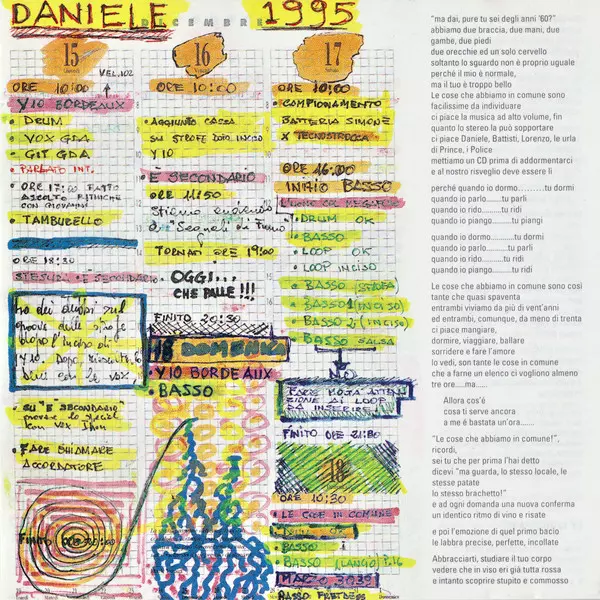 DANIELE
DICEMBRE
1995
15
VEL.102
ORE 10:00
Y10 BORDEAUX
• DRUM
• VOX GDA
• GIT GDA
• PARLATO INT.
• ORE 17:00 FATTO
ASCOLTO RITMICHE
CON GIOVANNI
• TAMBURELLO
ORE 18:30
È SECONDARIO
ho dei dubbi sul
groove delle strofe
dopo l'inciso di
Y10. Dopo
• SU "È SECONDARIO"
con vox
• FARE CHIAMARE
ACCORDATORE
FINITO
16
ORE 10:00
• AGGIUNTO CASSA
SU STROFE DOPO INCISO
Y10
• È SECONDARIO
ORE 11:50
Stiamo andando
a Segnali di Fumo
TORNATO ORE 19:00
• OGGI...
CHE PALLE!!!
FINITO 20:30
DOMENICA
• Y10 BORDEAUX
• BASSO
17
ORE 10:00
• CAMPIONAMENTO
BATTERIA SIMONE
X TECNOSTROCCA
ORE 16:00
INIZIO BASSO
• DRUM OK
• BASSO
• LOOP OK
• LOOP INCISO
• BASSO (STROFA)
• BASSO 1 (INCISO)
• BASSO 2 (INCISO)
• BASSO SALSA
FARE
ZIONE AI LOOP
DA INSERIRE
FINITO ORE 21:30
18
ORE 10:30
• LE COSE IN COMUNE
• BASSO
• BASSO (LANGO)
MARZO 3039
BASSO FRETLESS
"ma dai, pure tu sei degli anni '60?"
abbiamo due braccia, due mani, due
gambe, due piedi
due orecchie ed un solo cervello
soltanto lo sguardo non è proprio uguale
perché il mio è normale,
ma il tuo è troppo bello
Le cose che abbiamo in comune sono
facilissime da individuare
ci piace la musica ad alto volume, fin
quanto lo stereo la può sopportare
ci piace Daniele, Battisti, Lorenzo, le urla
di Prince, i Police
mettiamo un CD prima di addormentarci
e al nostro risveglio deve essere lì
perché quando io dormo.........tu dormi
quando io parlo.......tu parli
quando io rido........tu ridi
quando io piango......tu piangi
quando io dormo..........tu dormi
quando io parlo.......tu parli
quando io rido........tu ridi
quando io piango......tu ridi
Le cose che abbiamo in comune sono così
tante che quasi spaventa
entrambi viviamo da più di vent'anni
ed entrambi, comunque, da meno di trenta
ci piace mangiare,
dormire, viaggiare, ballare
sorridere e fare l'amore
lo vedi, son tante le cose in comune
che a farne un elenco ci vogliono almeno
tre ore....ma.....
Allora cos'è
cosa ti serve ancora
a me è bastata un'ora.......
"Le cose che abbiamo in comune!",
ricordi,
sei tu che per prima l'hai detto
dicevi "ma guarda, lo stesso locale, le
stesse patate
lo stesso brachetto!"
e ad ogni domanda una nuova conferma
un identico ritmo di vino e risate
e poi l'emozione di quel primo bacio
le labbra precise, perfette, incollate
Abbracciarti, studiare il tuo corpo
vedere che in viso eri già tutta rossa
e intanto scoprire stupito e commosso